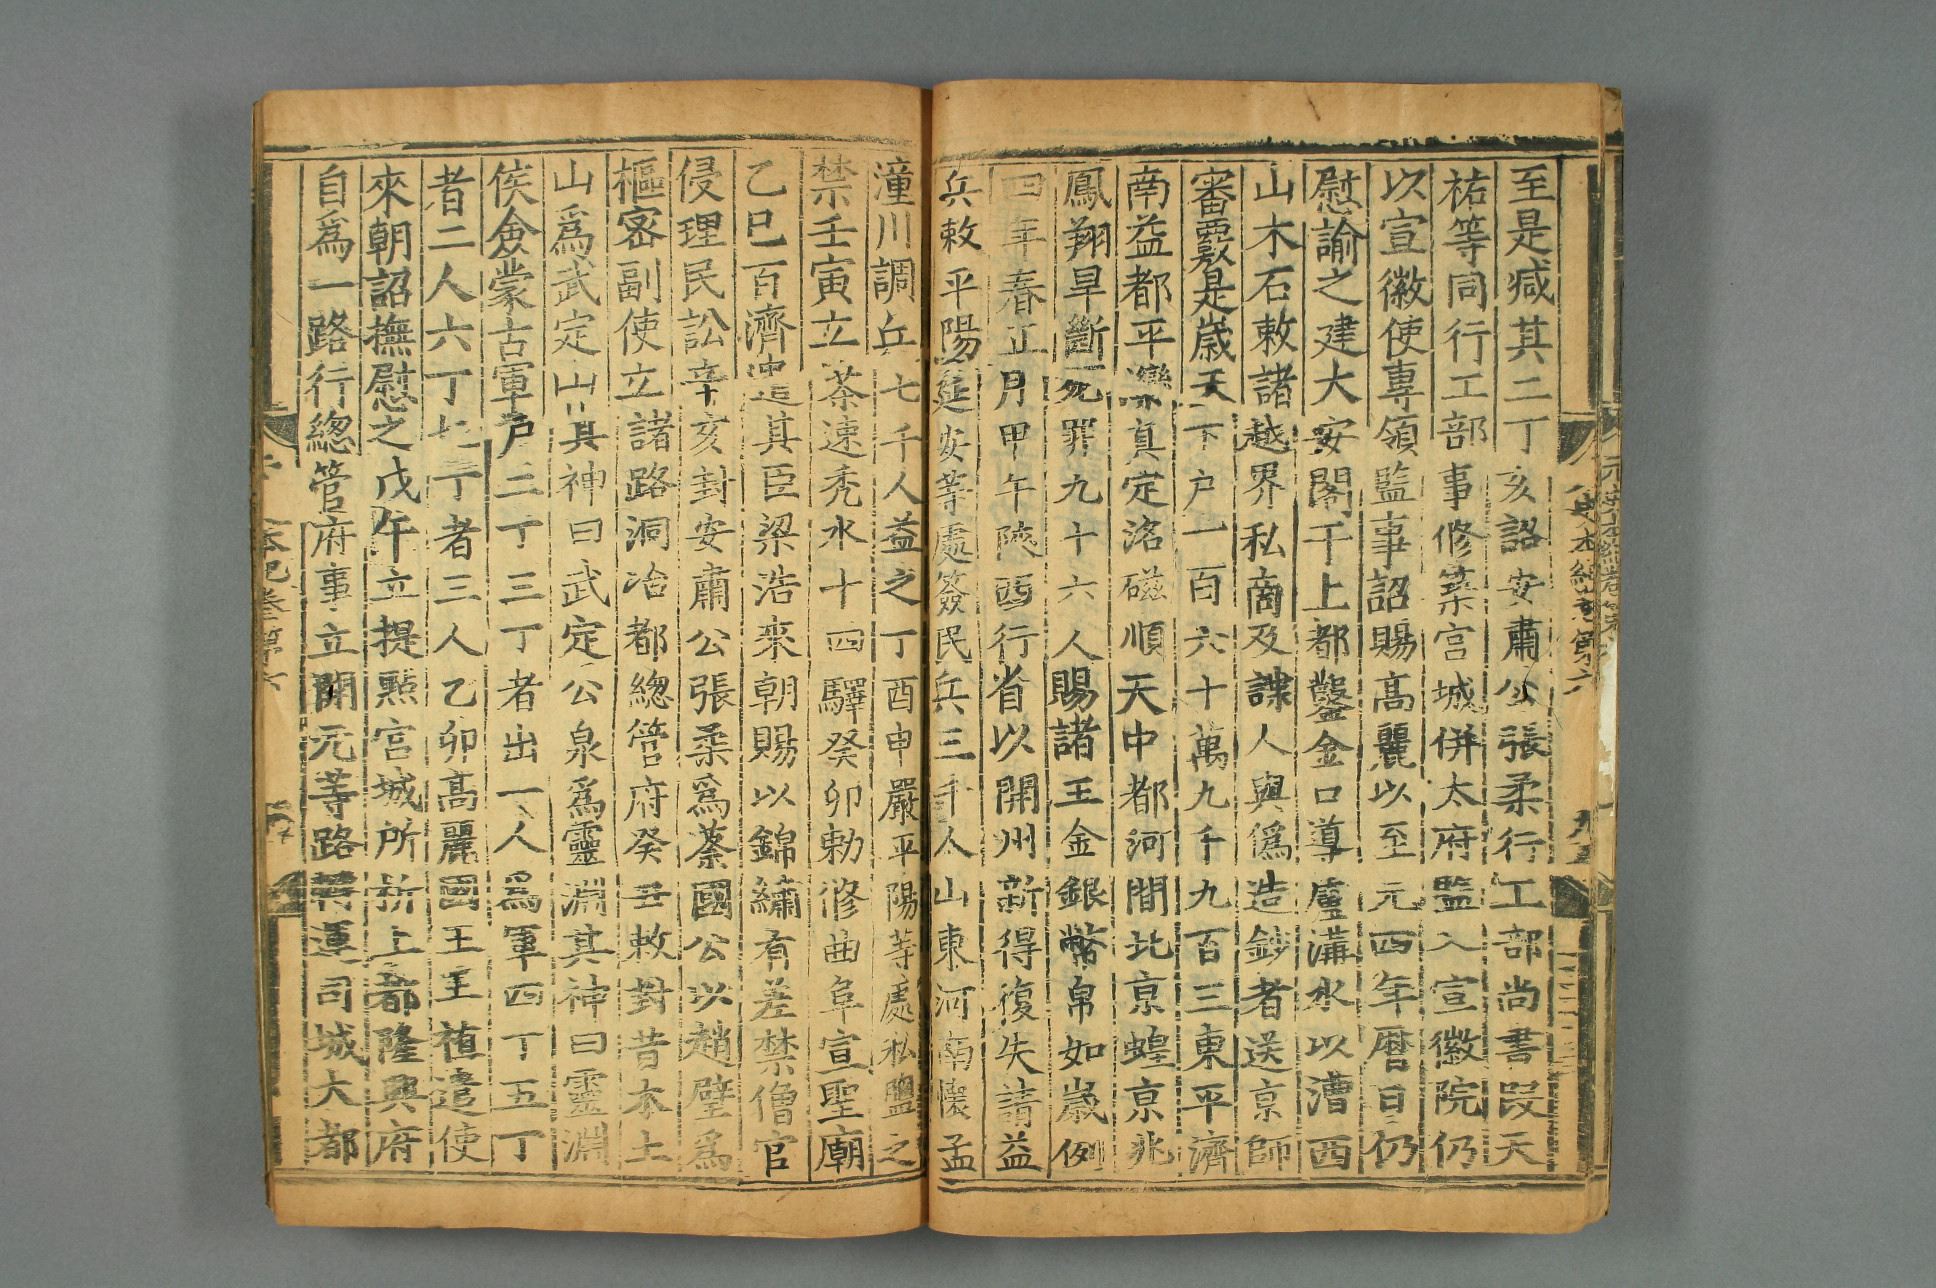 至是臧其二丁亥詔安肅公張柔行工部尚書段天
祐等同行工部事修築宮城併太府監入宣徽院仍
以宣徽使專領監事詔賜高麗以至元四年曆日仍
慰諭之建大安閣于上都鑿金口導盧溝水以漕西
山木石敕諸越界私商及諜人與偽造鈔者送京師
審覈是歲天下戶一百六十萬九千九百三東平濟
南益都平灤真定洺磁順天中都河間北京蝗京兆
鳳翔旱斷死罪九十六人賜諸王金銀幣帛如歲例
四年春正月甲午陜西行省以開州新得復失請益
兵敕平陽延安等處簽民兵三千人山東河南懷孟
潼川調兵七千人益之丁酉申嚴平陽等處私鹽之
禁壬寅立茶速禿水十四驛癸卯勅修曲阜宣聖廟
乙巳百濟遣其臣梁浩來朝賜以錦繡有差禁僧官
侵理民訟辛亥封安肅公張柔爲蔡國公以趙璧爲
樞密副使立諸路洞冶都總管府癸丑敕封昔木土
山爲武定山其神曰武定公泉爲靈淵其神曰靈淵
侯僉蒙古軍戶二丁三丁者出一人爲軍四丁五丁
者二人六丁七丁者三人乙卯高麗國王王禃遣使
來朝詔撫慰之戊午立提點宮城所析上都隆興府
自爲一路行總管府事立開元等路轉運司城大都